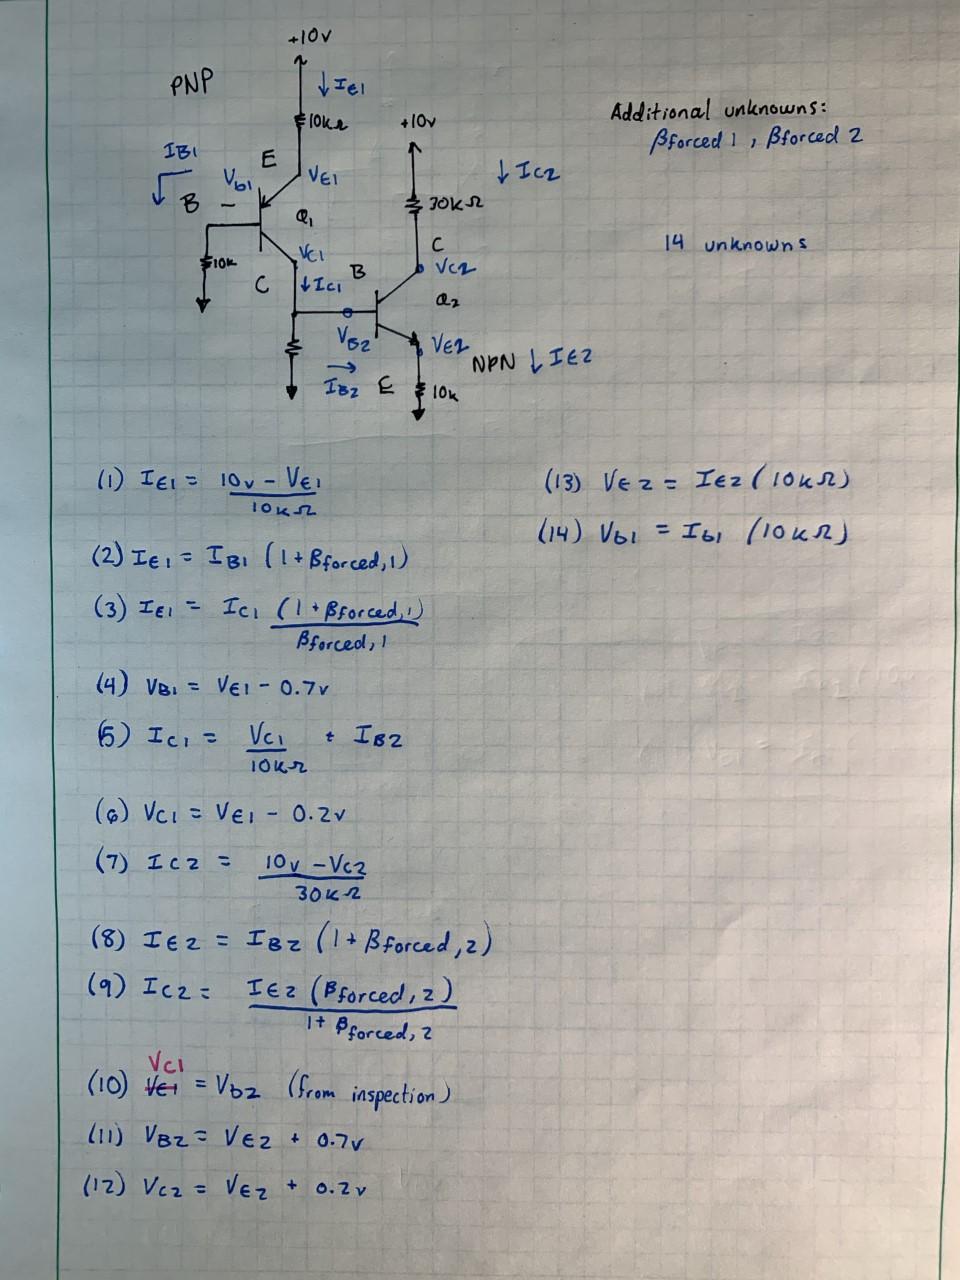 +10v
PNP
↓ IE1
10kΩ
+10v
Additional unknowns:
βforced 1 , βforced 2
IB1
E
Vb1
VE1
↓ IC2
B
Q1
30kΩ
14 unknowns
10k
VC1
C
B
VC2
C
↓ IC1
Q2
VB2
VE2
NPN ↓ IE2
→
IB2
E
10k
(1) IE1 = 10v - VE1 / 10kΩ
(2) IE1 = IB1 (1 + βforced,1)
(3) IE1 = IC1 (1 + βforced,1) / βforced,1
(4) VB1 = VE1 - 0.7v
(5) IC1 = VC1 / 10kΩ + IB2
(6) VC1 = VE1 - 0.2v
(7) IC2 = 10v - VC2 / 30kΩ
(8) IE2 = IB2 (1 + βforced,2)
(9) IC2 = IE2 (βforced,2) / 1 + βforced,2
VC1
(10) VE1 = Vb2 (from inspection)
(11) VB2 = VE2 + 0.7v
(12) VC2 = VE2 + 0.2v
(13) VE2 = IE2 (10kΩ)
(14) Vb1 = Ib1 (10kΩ)